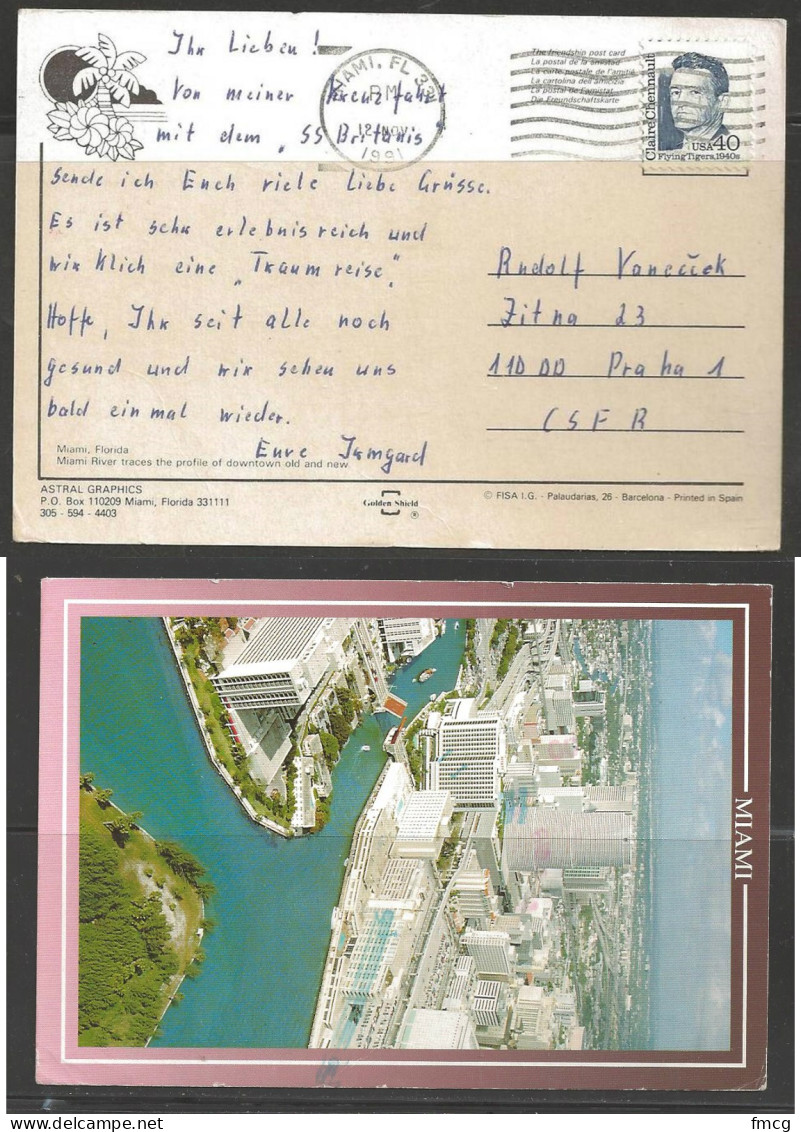 Ihr Lieben!
Von meiner Kreuzfahrt
mit dem „SS Britanis"
sende ich Euch viele Liebe Grüsse.
Es ist sehr erlebnisreich und
wirklich eine „Traumreise".
Hoffe, Ihr seit alle noch
gesund und wir sehen uns
bald einmal wieder.
Eure Irmgard
MIAMI, FL 33
PM
12 NOV
1991
The friendship post card
La postal de la amistad
La carte postale de l'amitié
La cartolina dell'amicizia
La postal de l'amistat
Die Freundschaftskarte
Claire Chennault
USA 40
Flying Tigers, 1940s
Rudolf Vaneček
Zitna 23
110 00 Praha 1
CSFR
Miami, Florida
Miami River traces the profile of downtown old and new.
ASTRAL GRAPHICS
P.O. Box 110209 Miami, Florida 331111
305 - 594 - 4403
Golden Shield
®
© FISA I.G. - Palaudarias, 26 - Barcelona - Printed in Spain
MIAMI
fmcg